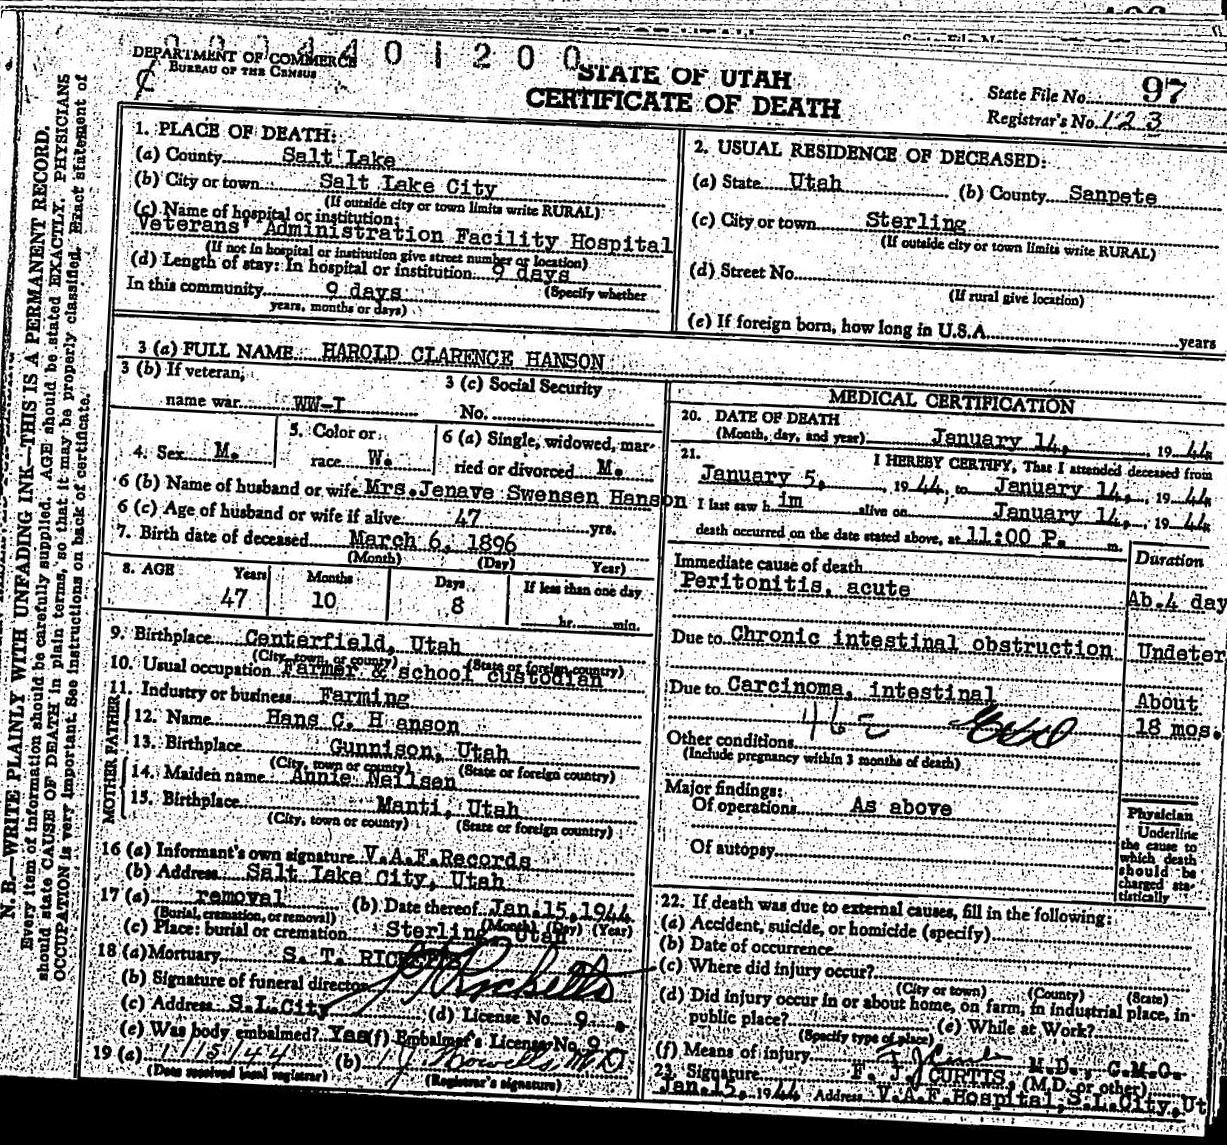 DEPARTMENT OF COMMERCE
BUREAU OF THE CENSUS
STATE OF UTAH
CERTIFICATE OF DEATH
State File No. 97
Registrar's No. 123
N. B.—WRITE PLAINLY WITH UNFADING INK—THIS IS A PERMANENT RECORD.
Every item of information should be carefully supplied. AGE should be stated EXACTLY. PHYSICIANS
should state CAUSE OF DEATH in plain terms, so that it may be properly classified. Exact statement of
OCCUPATION is very important. See instructions on back of certificate.
1. PLACE OF DEATH:
(a) County Salt Lake
(b) City or town Salt Lake City
(If outside city or town limits write RURAL)
(c) Name of hospital or institution:
Veterans' Administration Facility Hospital
(If not in hospital or institution give street number or location)
(d) Length of stay: In hospital or institution 9 days
In this community 9 days (Specify whether
years, months or days)
2. USUAL RESIDENCE OF DECEASED:
(a) State Utah (b) County Sanpete
(c) City or town Sterling
(If outside city or town limits write RURAL)
(d) Street No.
(If rural give location)
(e) If foreign born, how long in U.S.A. years
3 (a) FULL NAME HAROLD CLARENCE HANSON
3 (b) If veteran, 3 (c) Social Security
name war WW-I No.
4. Sex M. 5. Color or race W. 6 (a) Single, widowed, married or divorced M.
6 (b) Name of husband or wife Mrs.Jenave Swensen Hanson
6 (c) Age of husband or wife if alive 47 yrs.
7. Birth date of deceased March 6, 1896
(Month) (Day) Year)
8. AGE Years Months Days If less than one day
47 10 8 hr. min.
9. Birthplace Centerfield, Utah
(City, town, or county) (State or foreign country)
10. Usual occupation Farmer & school custodian
11. Industry or business Farming
FATHER
12. Name Hans C. H anson
13. Birthplace Gunnison, Utah
(City, town or county) (State or foreign country)
MOTHER
14. Maiden name Annie Neilsen
15. Birthplace Manti, Utah
(City, town or county) (State or foreign country)
16 (a) Informant's own signature V.A.F.Records
(b) Address Salt Lake City, Utah
17 (a) removal (b) Date thereof Jan.15,1944
(Burial, cremation, or removal) (Month) (Day) (Year)
(c) Place: burial or cremation Sterling, Utah
18 (a) Mortuary S. T. RICKETTS
(b) Signature of funeral director S T Ricketts
(c) Address S.L.City (d) License No. 9
(e) Was body embalmed? Yes (f) Embalmer's License No. 9
19 (a) 1/15/44 (b) M.D.
(Date received local registrar) (Registrar's signature)
MEDICAL CERTIFICATION
20. DATE OF DEATH
(Month, day, and year) January 14, 1944
21. I HEREBY CERTIFY, That I attended deceased from
January 5, 1944, to January 14, 1944
I last saw h im alive on January 14, 1944
death occurred on the date stated above, at 11:00 P. m.
Immediate cause of death Duration
Peritonitis, acute Ab.4 day
Due to Chronic intestinal obstruction Undeter
Due to Carcinoma, intestinal About
18 mos.
Other conditions
(Include pregnancy within 3 months of death)
Major findings:
Of operations As above
Of autopsy
Physician
Underline
the cause to
which death
should be
charged sta-
tistically
22. If death was due to external causes, fill in the following:
(a) Accident, suicide, or homicide (specify)
(b) Date of occurrence
(c) Where did injury occur?
(City or town) (County) (State)
(d) Did injury occur in or about home, on farm, in industrial place, in
public place? (e) While at Work?
(Specify type of place)
(f) Means of injury
23. Signature F. J. CURTIS, M.D., C.M.O. (M.D. or other)
Jan.15, 1944 Address V.A.F.Hospital,S.L.City,Ut